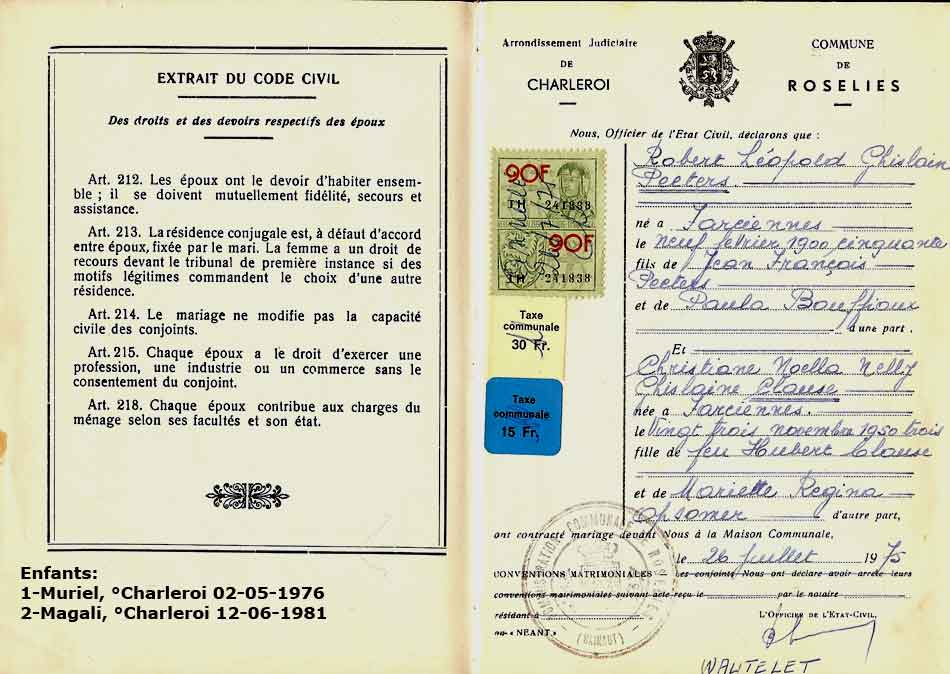 EXTRAIT DU CODE CIVIL
Des droits et des devoirs respectifs des époux
Art. 212. Les époux ont le devoir d'habiter ensem-
ble ; il se doivent mutuellement fidélité, secours et
assistance.
Art. 213. La résidence conjugale est, à défaut d'accord
entre époux, fixée par le mari. La femme a un droit de
recours devant le tribunal de première instance si des
motifs légitimes commandent le choix d'une autre
résidence.
Art. 214. Le mariage ne modifie pas la capacité
civile des conjoints.
Art. 215. Chaque époux a le droit d'exercer une
profession, une industrie ou un commerce sans le
consentement du conjoint.
Art. 218. Chaque époux contribue aux charges du
ménage selon ses facultés et son état.
Enfants:
1-Muriel, °Charleroi 02-05-1976
2-Magali, °Charleroi 12-06-1981
Arrondissement Judiciaire
DE
CHARLEROI
COMMUNE
DE
ROSELIES
Nous, Officier de l'Etat Civil, déclarons que :
Robert Léopold Ghislain
Peeters
né a Farciennes
le neuf février 1900 cinquante
fils de Jean François
Peeters
et de Paula Bouffioux
d'une part.
Et
Christiane Noella Nelly
Ghislaine Clause
née a Farciennes.
le Vingt trois novembre 1950 trois
fille de feu Hubert Clause
et de Mariette Regina
Opsomer d'autre part,
ont contracté mariage devant Nous à la Maison Communale,
le 26 juillet 1975
CONVENTIONS MATRIMONIALES Les conjoints Nous ont déclaré avoir arrêté leurs
conventions matrimoniales suivant acte reçu le par le notaire
résidant à
ou « NÉANT. »
L'OFFICIER DE L'ETAT-CIVIL,
WAUTELET
90F
1H 241838
90F
1H 241838
Taxe
communale
30 Fr.
Taxe
communale
15 Fr.
ADMINISTRATION COMMUNALE ROSELIES
(HAINAUT)